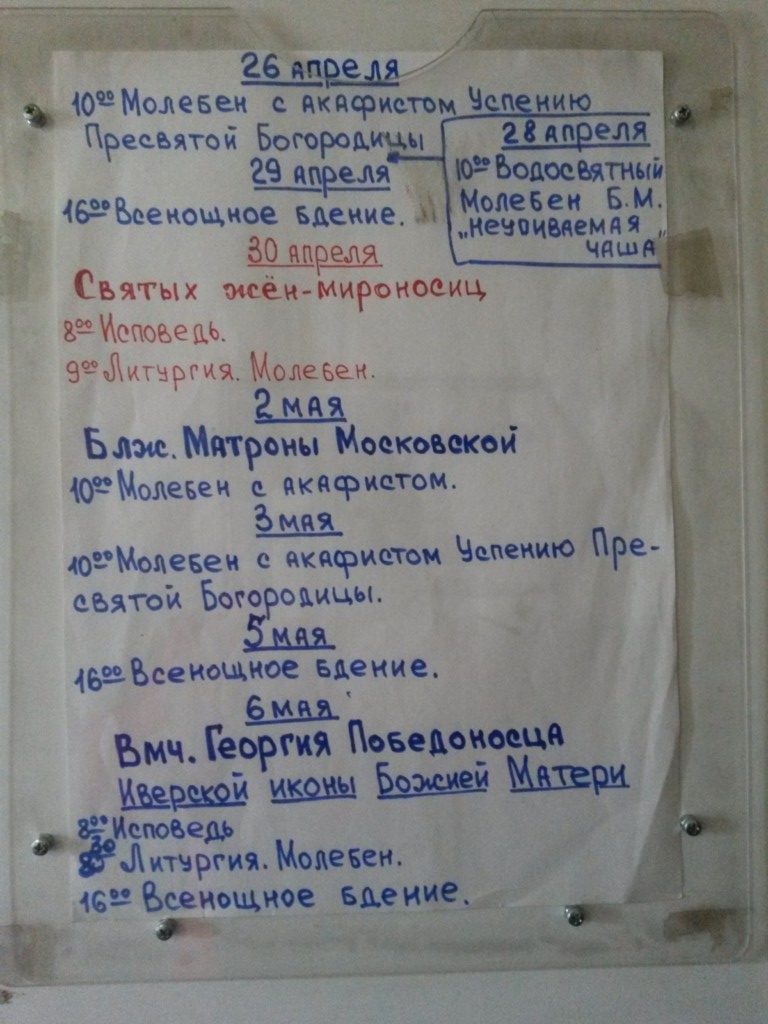 26 апреля
10⁰⁰ Молебен с акафистом Успению
Пресвятой Богородицы
28 апреля
10⁰⁰ Водосвятный
Молебен Б.М.
„Неупиваемая
чаша"
29 апреля
16⁰⁰ Всенощное бдение.
30 апреля
Святых жён-мироносиц
8⁰⁰ Исповедь.
9⁰⁰ Литургия. Молебен.
2 мая
Блж. Матроны Московской
10⁰⁰ Молебен с акафистом.
3 мая
10⁰⁰ Молебен с акафистом Успению Пре-
святой Богородицы.
5 мая
16⁰⁰ Всенощное бдение.
6 мая
Вмч. Георгия Победоносца
Иверской иконы Божией Матери
8⁰⁰ Исповедь
8³⁰ Литургия. Молебен.
16⁰⁰ Всенощное бдение.